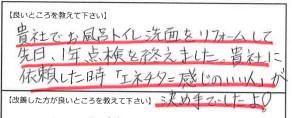 【良いところを教えて下さい】
貴社でお風呂トイレ洗面をリフォームして
先日、1年点検を終えました。貴社に
依頼した時「エネチタ=感じのいい人」が
【改善した方が良いところを教えて下さい】 決め手でしたよ!